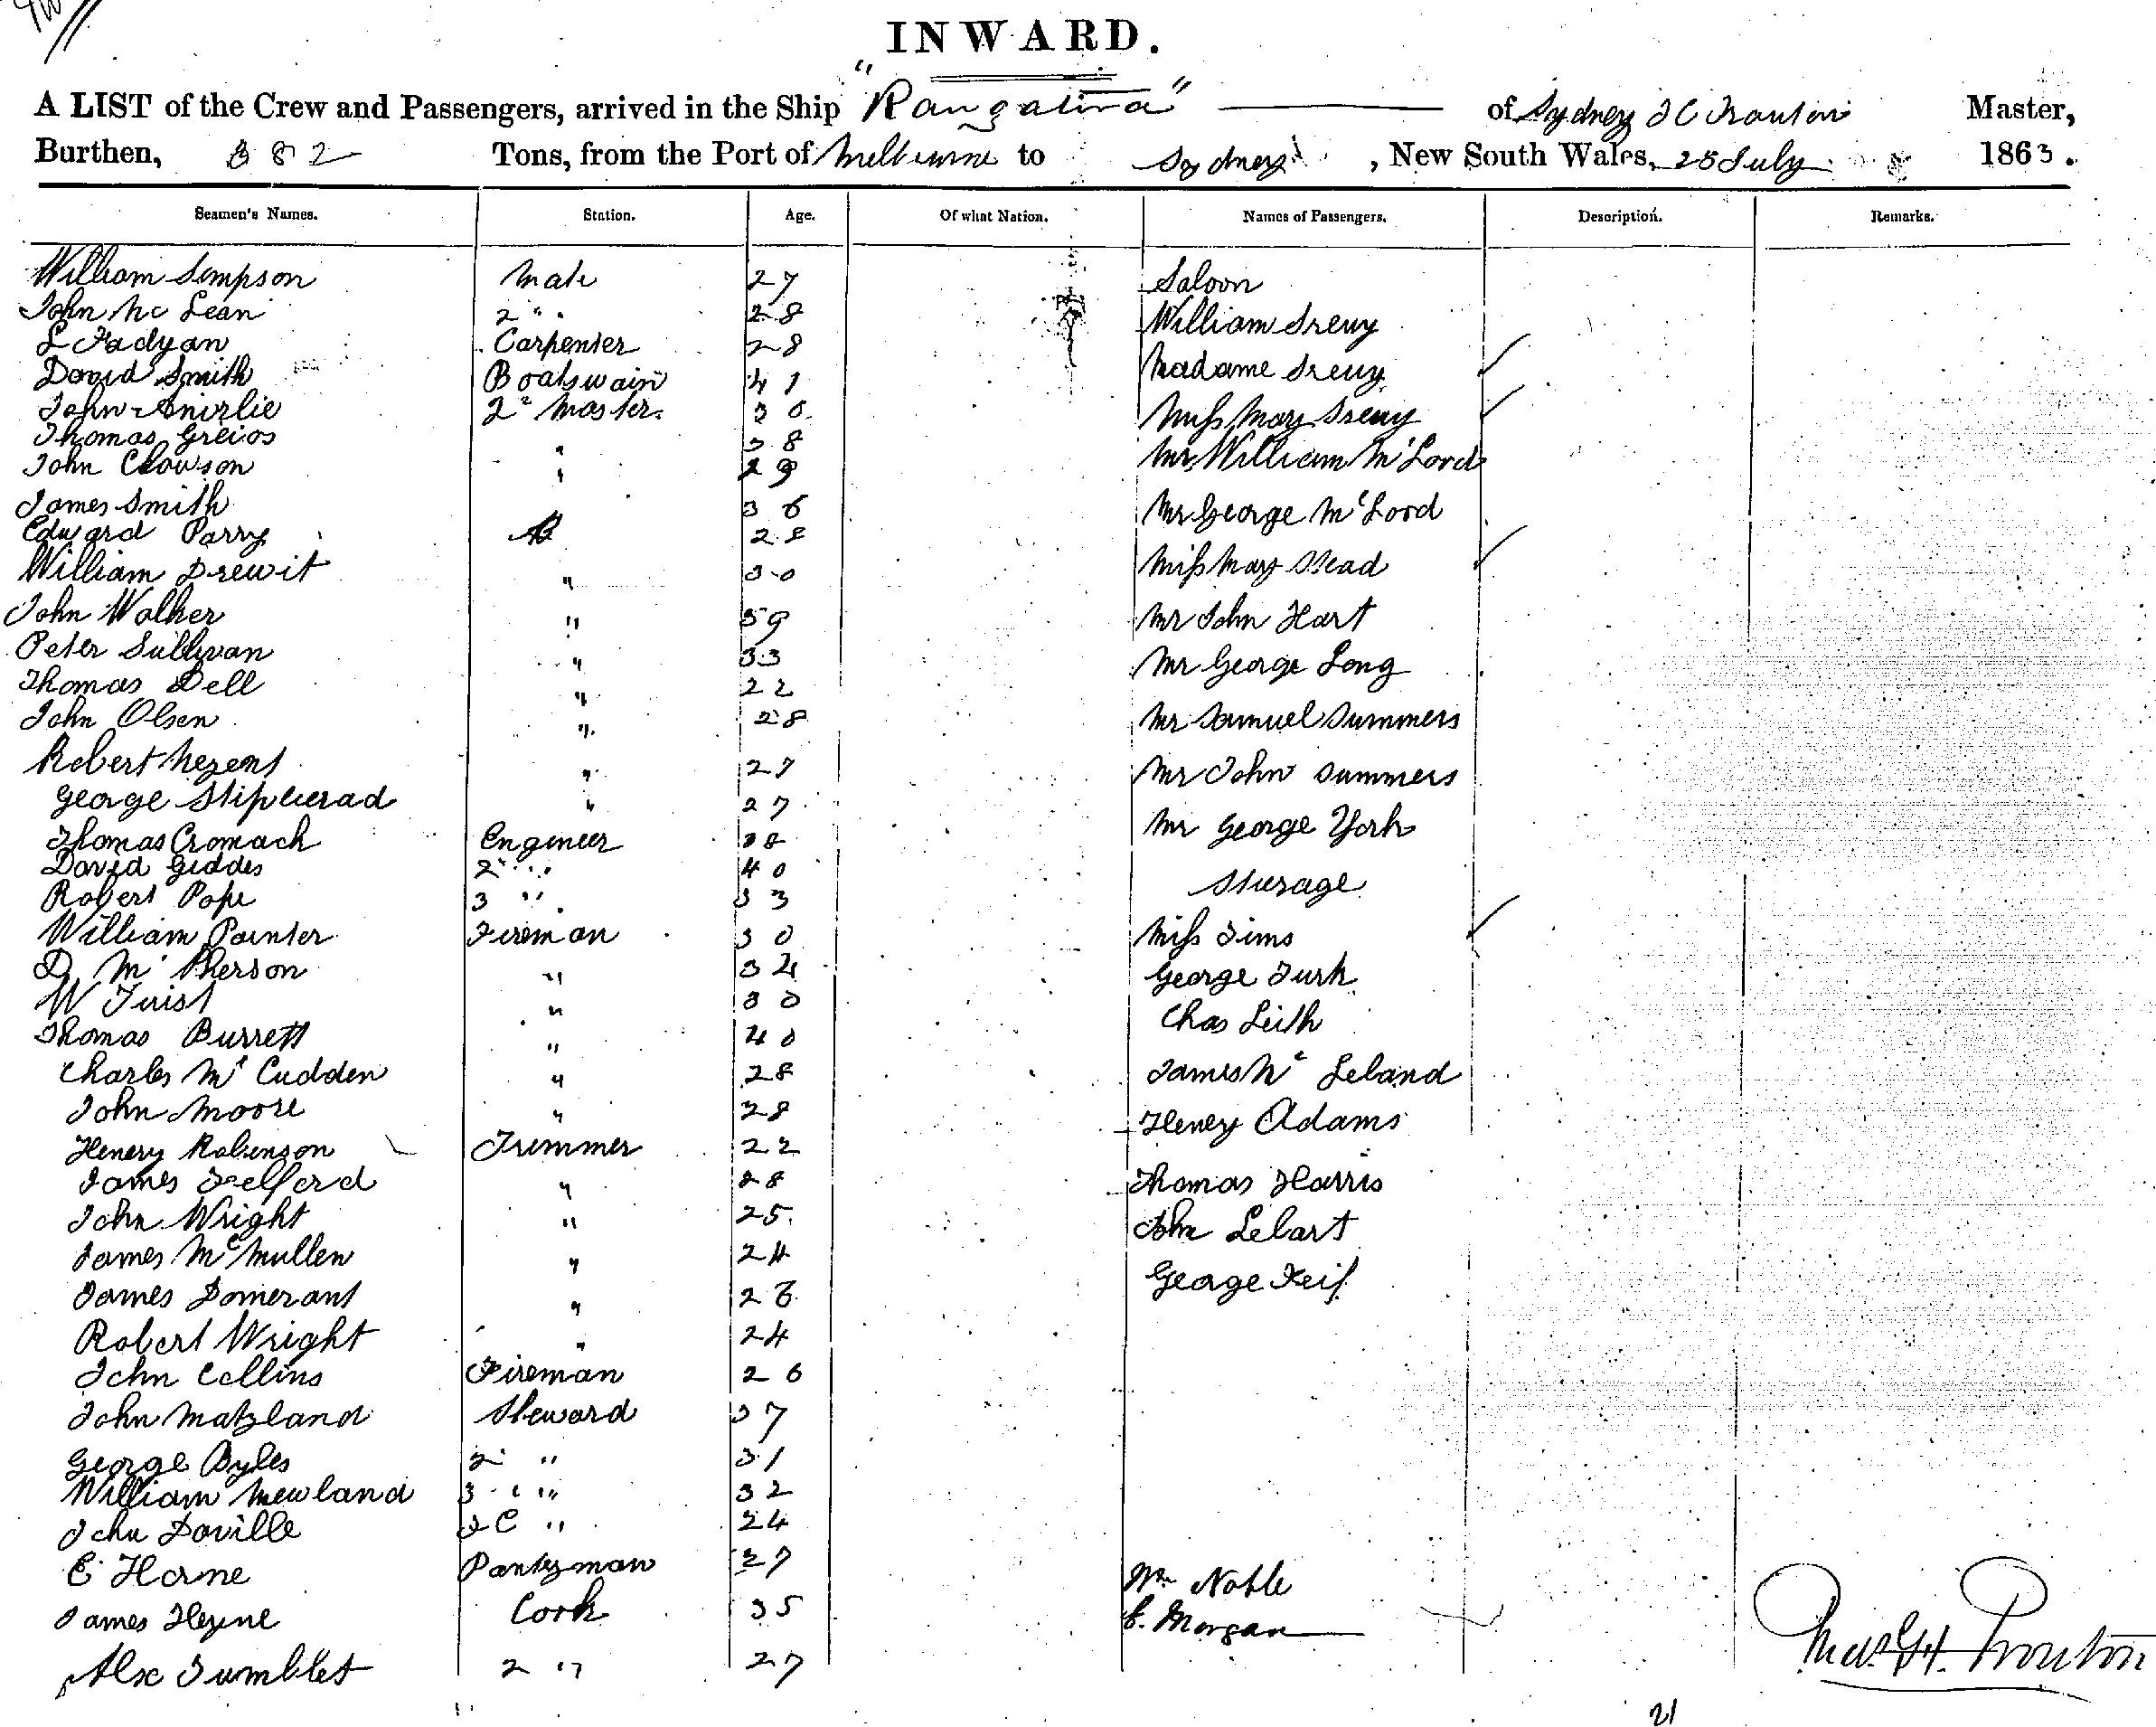 INWARD.
A LIST of the Crew and Passengers, arrived in the Ship "Rangatira" of Sydney Master,
Burthen, 382 Tons, from the Port of Melbourne to Sydney, New South Wales, 25 July 1863.
Seamen's Names. Station. Age. Of what Nation. Names of Passengers. Description. Remarks.
William Simpson Mate 27
John Mc Lean 2 " 28
L Fadyan Carpenter 28
David Smith Boatswain 41
John 2r Master
Thomas " 38
John Clowson " 29
James Smith 36
Edward Parry AB 28
William Drewit " 30
John Walker " 59
Peter Sullivan " 33
Thomas Dell " 22
John Olsen " 28
Robert " 27
George " 27
Thomas Cromach Engineer 38
David Geddes 2 " 40
Robert Pope 3 " 33
William Painter Fireman 30
D McPherson " 34
W " 30
Thomas Burrett " 40
Charles Mc Cudden " 28
John Moore " 28
Henery Robenson Tremmer 22
James Telford " 28
John Wright " 25
James McMullen " 24
James "
Robert Wright " 24
John Collins Fireman 26
John Steward 37
George Byles 2 " 31
William Mewland 3 " 32
John Doville "
E Horne Pantryman 27
James Cook 35
Alex 2 " 27
Saloon
William
Madame
Miss Mary
Mr William McLord
Mr George McLord
Miss Mary Stead
Mr John Hart
Mr George Long
Mr Samuel Summers
Mr John Summers
Mr George York
Sturage
Miss Tims
George Turk
Chas Leith
James Mc Leland
Henery Adams
Thomas Harris
John Lebart
George
Wm Noble
C. Morgan
21